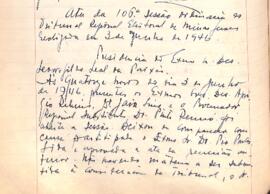 Ata da 106ª Sessão Ordinária do
Tribunal Regional Eleitoral de Minas Gerais
realizada em 3 de Junho de 1946.
Presidencia do Exmo. Sr. Des-
embargador Leal da Paixão.
As quatorze horas do dia 3 de Junho
de 1946, presentes os Exmos. Srs. Des.
e o Procurador
Regional Substituto, Dr.
aberta a sessão. Deixou de comparecer com
causa justificada o Exmo. Sr. Dr.
lida e aprovada a ata da reunião an-
terior. Não havendo materia a ser subme-
tida á consideração do Tribunal, o